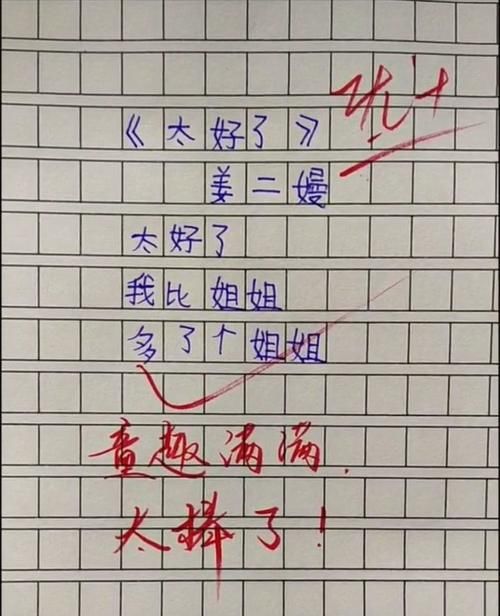 优+
《太好了》
姜二嫚
太好了
我比姐姐
多了个姐姐
童趣满满.
太棒了！